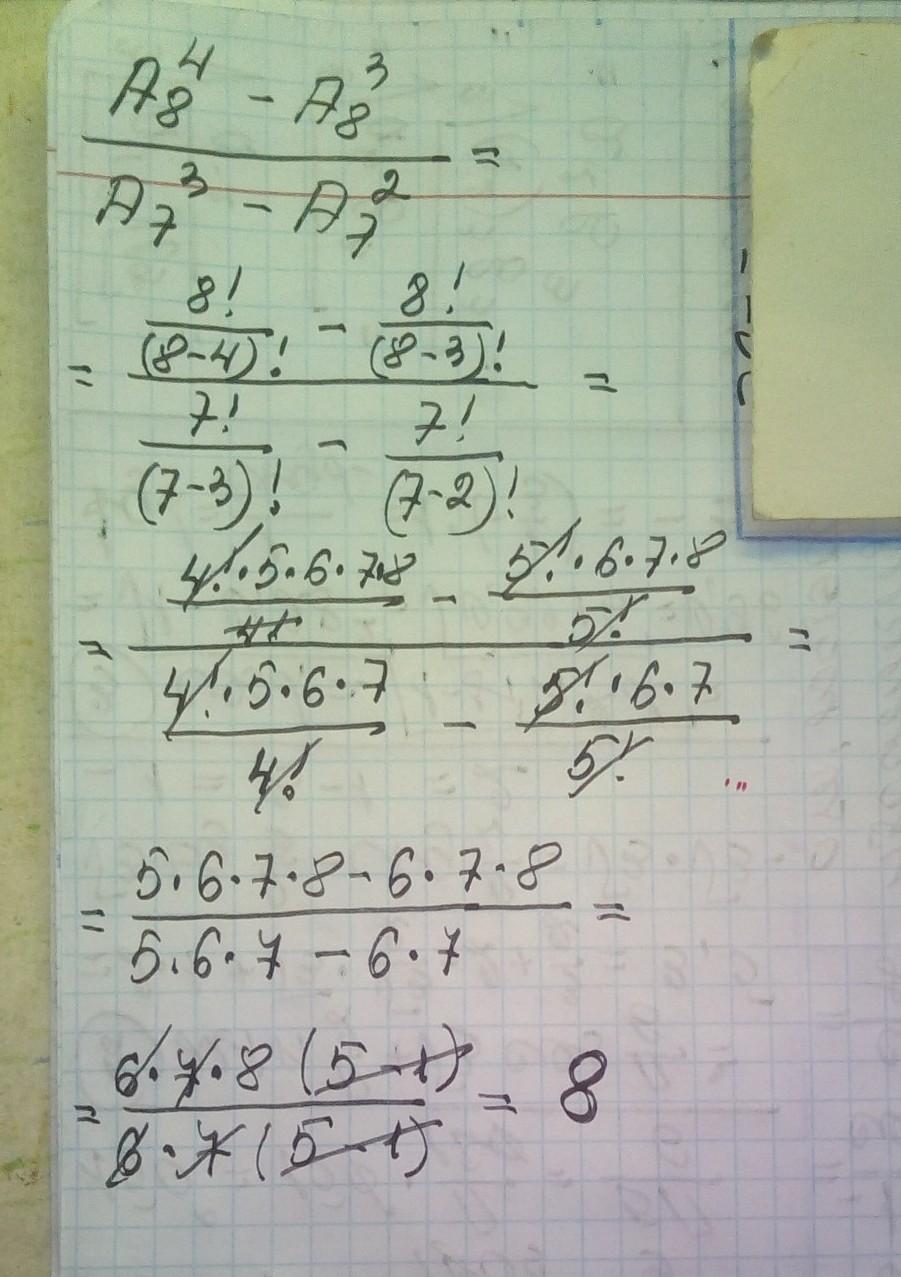 A₈⁴ - A₈³
───────── =
A₇³ - A₇²
= (8!/(8-4)! - 8!/(8-3)!) / (7!/(7-3)! - 7!/(7-2)!) =
= (4!·5·6·7·8/4! - 5!·6·7·8/5!) / (4!·5·6·7/4! - 5!·6·7/5!) =
= (5·6·7·8 - 6·7·8) / (5·6·7 - 6·7) =
= 6·7·8(5-1) / 6·7(5-1) = 8